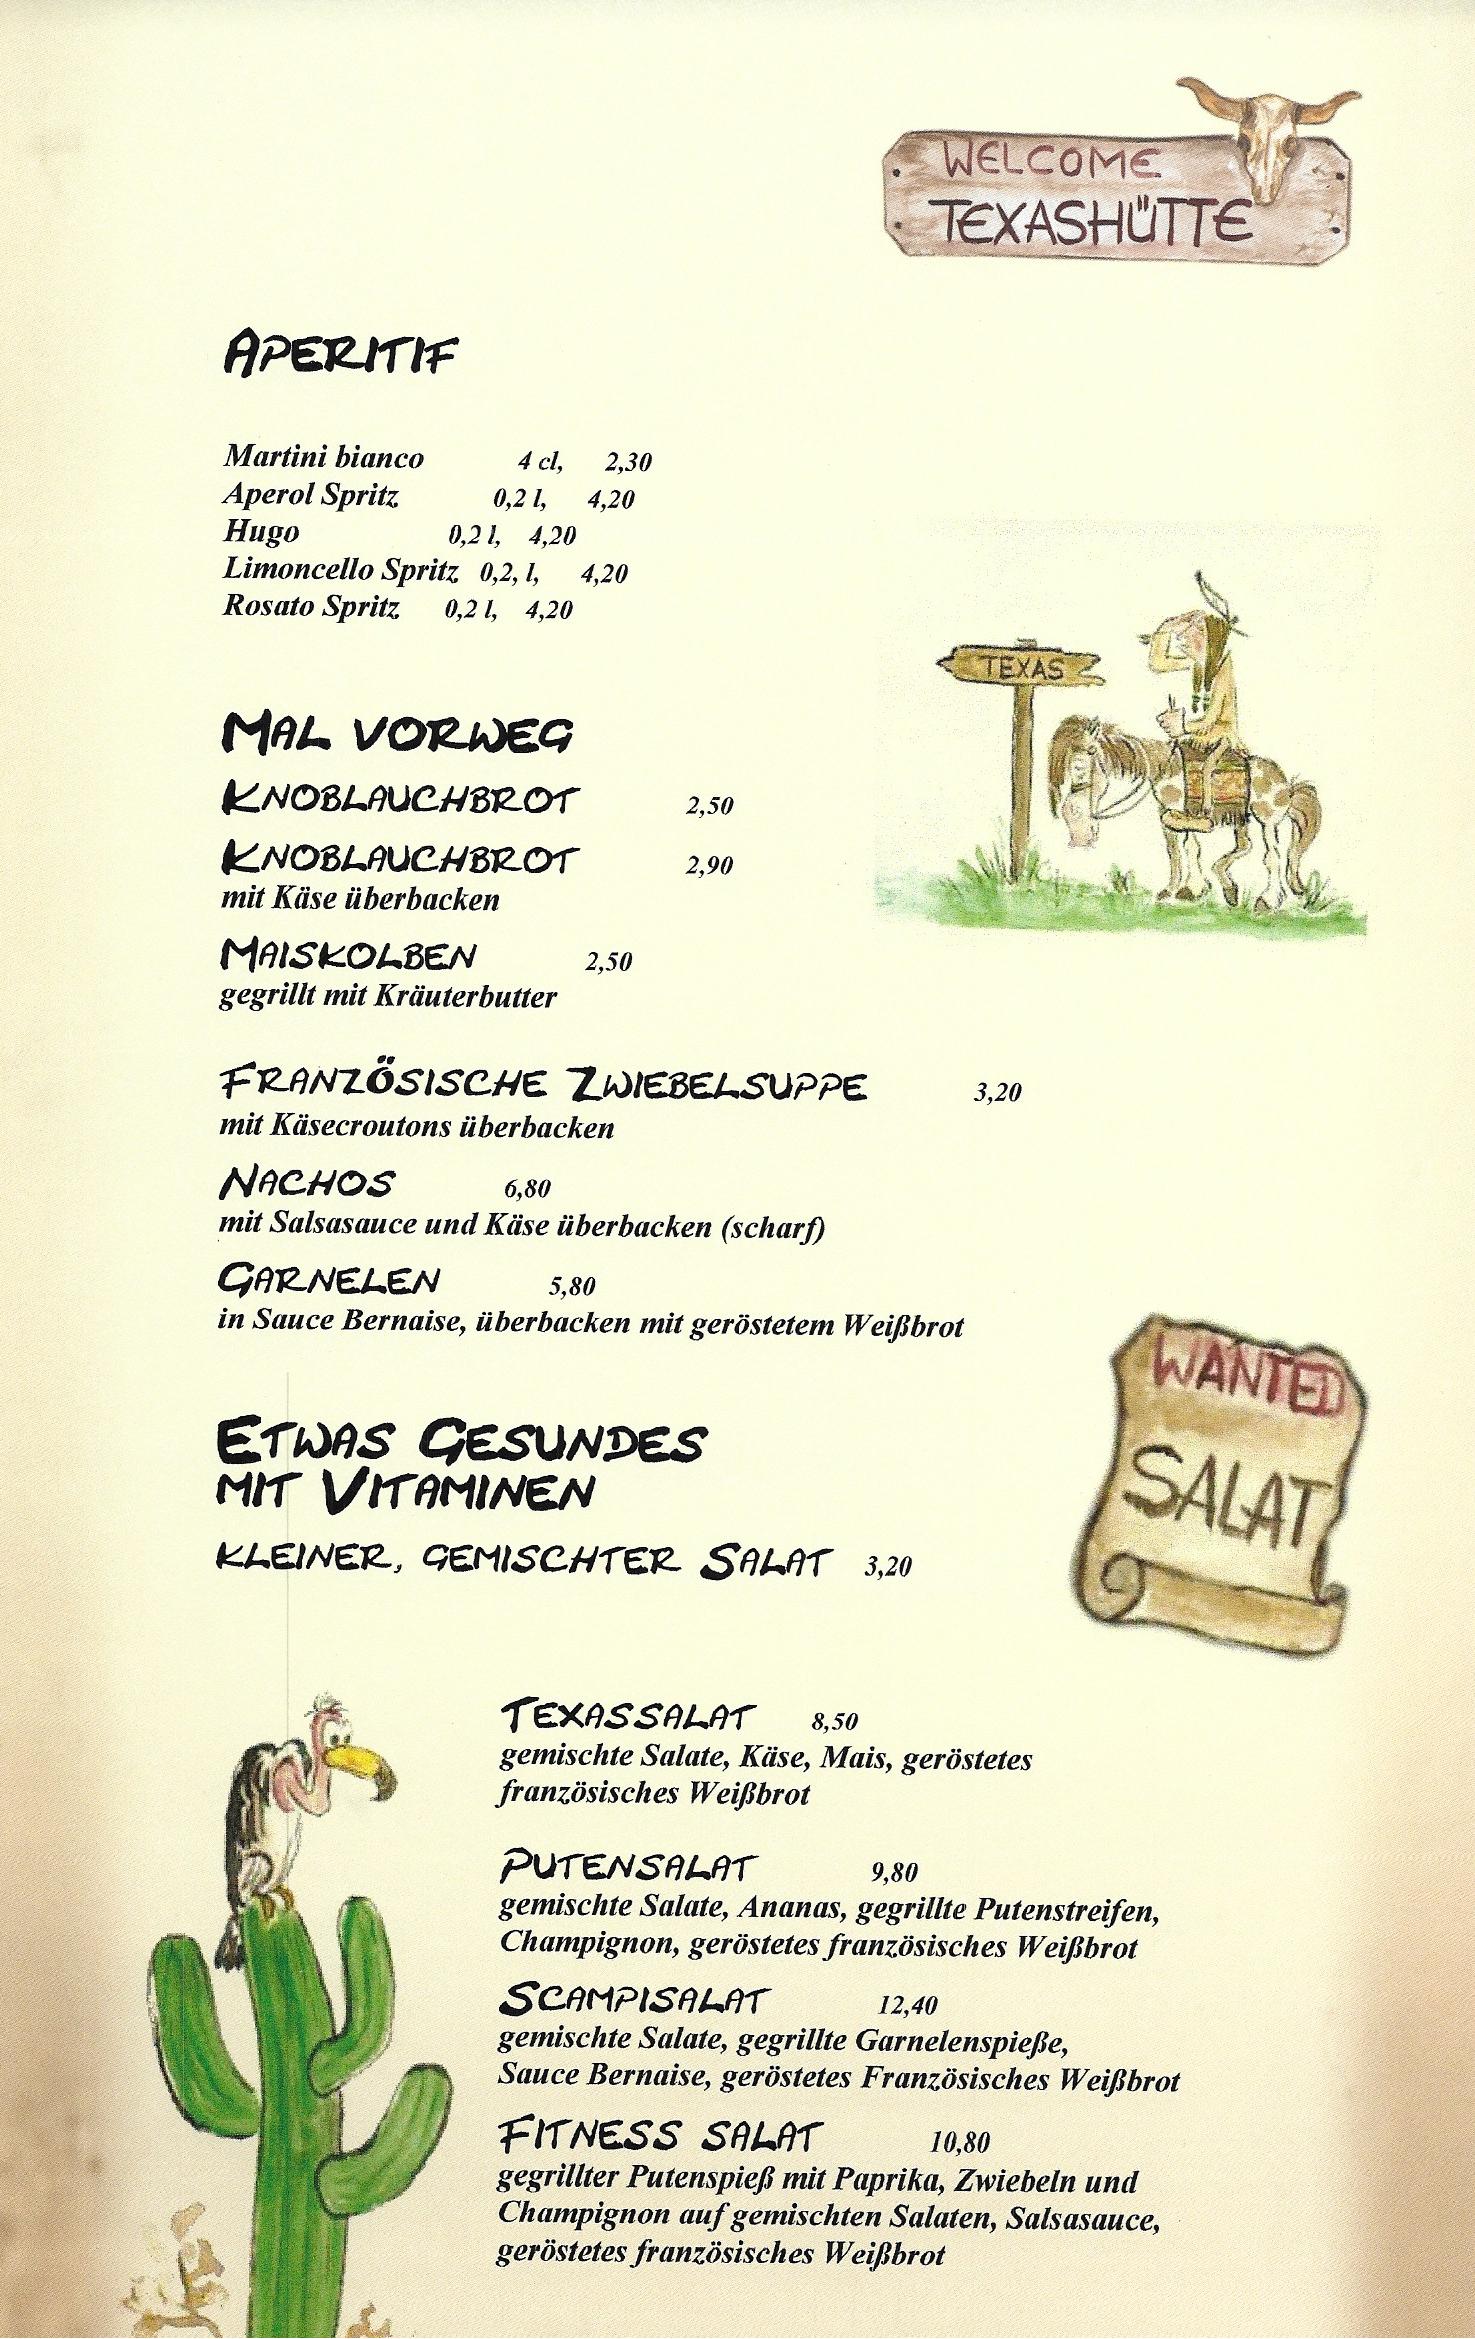 WELCOME
TEXASHÜTTE
APERITIF
Martini bianco 4 cl, 2,30
Aperol Spritz 0,2 l, 4,20
Hugo 0,2 l, 4,20
Limoncello Spritz 0,2, l, 4,20
Rosato Spritz 0,2 l, 4,20
TEXAS
MAL VORWEG
KNOBLAUCHBROT 2,50
KNOBLAUCHBROT 2,90
mit Käse überbacken
MAISKOLBEN 2,50
gegrillt mit Kräuterbutter
FRANZÖSISCHE ZWIEBELSUPPE 3,20
mit Käsecroutons überbacken
NACHOS 6,80
mit Salsasauce und Käse überbacken (scharf)
GARNELEN 5,80
in Sauce Bernaise, überbacken mit geröstetem Weißbrot
WANTED
SALAT
ETWAS GESUNDES
MIT VITAMINEN
KLEINER, GEMISCHTER SALAT 3,20
TEXASSALAT 8,50
gemischte Salate, Käse, Mais, geröstetes
französisches Weißbrot
PUTENSALAT 9,80
gemischte Salate, Ananas, gegrillte Putenstreifen,
Champignon, geröstetes französisches Weißbrot
SCAMPISALAT 12,40
gemischte Salate, gegrillte Garnelenspieße,
Sauce Bernaise, geröstetes Französisches Weißbrot
FITNESS SALAT 10,80
gegrillter Putenspieß mit Paprika, Zwiebeln und
Champignon auf gemischten Salaten, Salsasauce,
geröstetes französisches Weißbrot